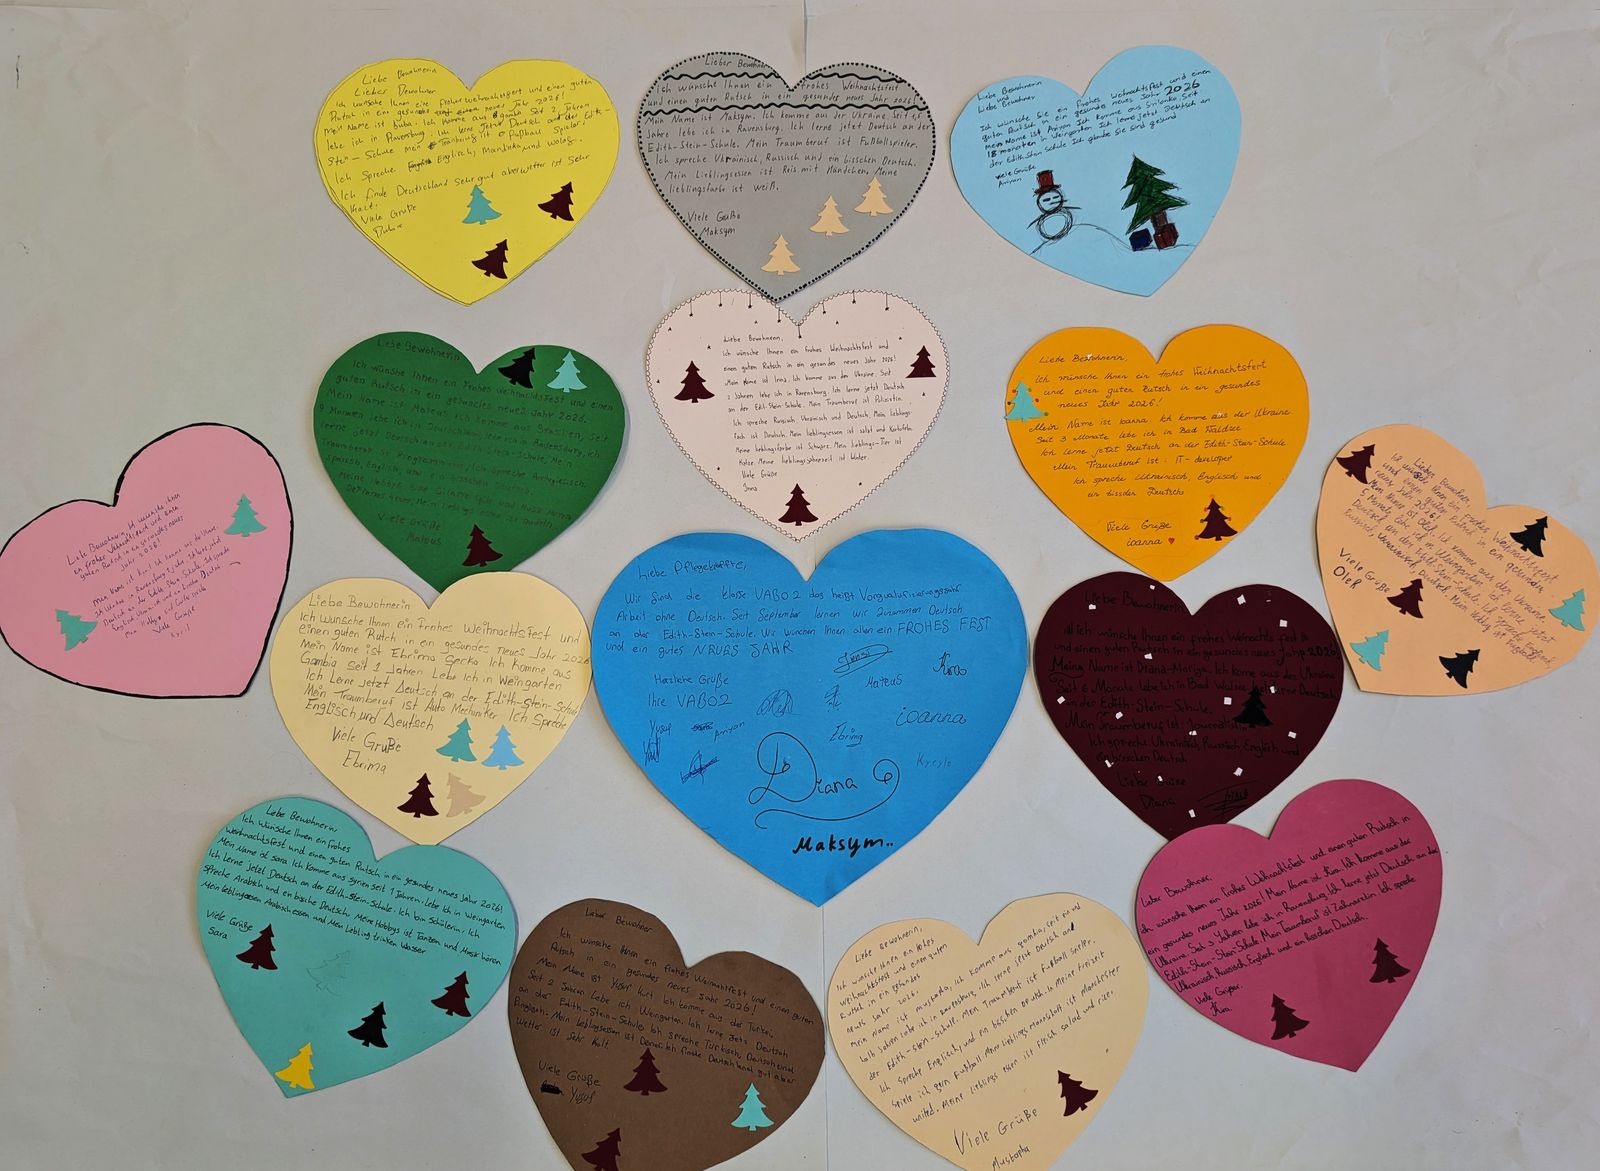 Liebe Bewohnerin
Lieber Bewohner
Ich wünsche Ihnen eine Froher weihnachtsfert und einen guten
Rutsch in ein gesundes neues Jahr 2026!
Mein Name ist Buba. Ich Komme aus gambia Seit 2 Jahren
lebe ich in Ravensburg. Ich lerne Jetzt Deutsch auf der Edith-
Stein-Schule mein Traumburg ist Fußball Spieler.
Ich Spreche Englisch, Mandinka und wolog.
Ich finde Deutschland Sehr gut aber wetter ist Sehr
Kalt.
Viele Gruße
Buba
Lieber Bewohner
Ich wünsche Ihnen ein frohes Weihnachtsfest
und einen guten Rutsch in ein gesundes neues Jahr 2026!
Mein Name ist Maksym. Ich komme aus der Ukraine. Seit 1,5
Jahre lebe ich in Ravensburg. Ich lerne jetzt Deutsch an der
Edith-Stein-Schule. Mein Traumberuf ist Fußballspieler.
Ich spreche Ukrainisch, Russisch und ein bisschen Deutsch.
Mein Lieblingsessen ist Reis mit Hündchen. Meine
lieblingsfarbe ist weiß.
Viele Gruße
Maksym
Liebe Bewohnerin
und
Liebe Bewohner
Ich wünsche Sie ein frohes Weihnachtsfest und einen
guten Rutsch in ein gesunde neues Jahr 2026
mein Name ist Ariyan Ich komme aus Srilanka Seit
18 monaten in Weingarten Ich lerne jetzt Deutsch an
der Edith-Stein Schule Ich glaube Sie sind gesund
viele Grüße
Ariyan
Liebe Bewohnerin
Ich wünsche Ihnen ein Frohes weihnachtsfest und einen
guten Rutsch in ein gesundes neues Jahr 2026.
Mein Name ist Mateus Ich komme aus Brasilien, Seit
9 Monaten lebe ich in Deutschland, Ich in Ravensburg, ich
lerne jetzt Deutsch an der Edith Stein-Schule, Mein
Traumberuf ist Programmierer, Ich spreche Portugiesisch,
spanisch, english, und ein bisschen Deutsch.
Meine hobbys sind Gitarre spielen und Musik hören
Viele Grüße
Mateus
Liebe Bewohnern,
Ich wünsche Ihnen ein frohes Weihnachtsfest und
einen guten Rutsch in ein gesundes neues Jahr 2026!
Mein Name ist Inna. Ich komme aus der Ukraine. Seit
2 Jahren lebe ich in Ravensburg. Ich lerne jetzt Deutsch
an der Edit-Stein-Schule. Mein Traumberuf ist Polizistin.
Ich spreche Russisch, Ukrainisch und Deutsch. Mein lieblings-
fach ist Deutsch. Mein lieblingsessen ist salat und Kartofeln.
Mein lieblingsfarbe ist Schwarz. Mein lieblings-Tier ist
Katze. Meine lieblingsjahreszeit ist Winter.
Viele Grüße
Inna
Liebe Bewohnerin,
Ich wünsche Ihnen ein frohes Weihnachtsfert
und einen guten Rutsch in ein gesundes
neues Jahr 2026!
Mein Name ist Ioanna. Ich komme aus der Ukraine
Seit 3 Monate lebe ich in Bad Waldsee
Ich lerne jetzt Deutsch an der Edith-Stein-Schule
Mein Traumberuf ist: IT-developer
Ich spreche Ukrainisch, Englisch und
ein bissder Deutsch
Viele Grüße
ioanna
Liebe Bewohnerin, Ich wünsche Ihnen
guten Rutsch in ein gesundes neues
Jahr 2026!
Viele Grüße
Kyrylo
Lieber Bewohner
Ich wünsche Ihnen ein Frohes Weihnachtsfest
und einen guten Rutsch in ein gesundes
neues Jahr 2026!
Mein Name ist Oleh. Ich komme aus der Ukraine.
5 Monate lebe ich in Weingarten. Ich lerne jetzt
Deutsch an der Edith-Stein-Schule. Ich spreche Englisch
Russisch, Ukrainisch und Deutsch. Mein Hobby ist Fußball
Viele Grüße
Oleh
Liebe Bewohnerin
Ich wünsche Ihnen ein Frohes Weihnachtsfest und
einen guten Rutch in ein gesundes neues Jahr 2026
Mein Name ist Ebrima Secka Ich komme aus
Gambia seit 1 Jahren Lebe Ich in Weingarten
Ich Lerne jetzt Deutsch an der Edith-Stein-Schule
Mein Traumberuf ist Auto Mechiniker Ich Spreche
Englisch und Deutsch
Viele Gruße
Ebrima
Liebe Pflegekräffte,
Wir sind die klasse VABO2 das heißt Vorqualifizierungsjahr
Arbeit ohne Deutsch. Seit September lernen wir zusammen Deutsch
an der Edith-Stein-Schule. Wir wünchen Ihnen allen ein FROHES FEST
und ein gutes NEUES JAHR
Herzliche Grüße
Ihre VABO2
Mateus
Kira
Yusuf
Ariyan
Ebrima
ioanna
Diana
Kyrylo
Maksym..
Liebe Bewohnerin
Ich wünsche Ihnen ein frohes Weinachts fest
und einen guten Rutsch in ein gesundes neues Jahr 2026!
Meine Name ist Diana-Mariya. Ich kome aus der Ukraine
Seit 6 Monate lebe ich in Bad Walsee, Ich lerne Deutsch
an der Edith-Stein-Schule.
Mein Traumberuf ist: Journalistin
Ich spreche Ukrainisch, Russisch, English und
ein bisschen Deutsch
Liebe Grüße
Diana
Liebe Bewohnerin,
Ich wünsche Ihnen ein frohes
Weihnachtsfest und einen guten Rutsch in ein gesundes neues Jahr 2026!
Mein Name ist sara Ich Komme aus syrien seit 1 Jahren. lebe Ich in Weingarten
Ich lerne jetzt Deutsch an der Edith-Stein-Schule. Ich bin Schülerin. Ich
spreche Arabisch und en bische Deutsch. Meine Hobbys ist Tanzen und Musik hören
Mein lieblingsessen Arabisch essen und Mein Lebling trinken Wasser
Viele Grüße
Sara
Lieber Bewohner
Ich wünsche Ihnen ein frohes Weinachtfest und einen guten
Rutsch in ein gesundes neues Jahr 2026!
Mein Name ist Yusuf kurt Ich komme aus der Turkei.
Seit 2 Jahran Lebe ich Weingarten. Ich lerne jetz Deutsch
an der Edith-Stein-Schule Ich spreche Turkisch, Deutsch und
Englisch. Mein Lieblingsessen ist Döner. Ich finde Deutschland gut aber
Wetter ist sehr Kalt.
Viele Grüße
Yusuf
Liebe Bewohnerin,
Ich wünsche Ihnen ein frohes
weihnachtsfest und einen guten
Rutsch in ein gesundes
neues Jahr 2026.
mein Name ist mustapha, ich komme aus gambia, seit ein und
halb Jahren lebe ich in Ravensburg. Ich lerne jetzt Deutsch and
der Edith-Stein-Schule. Mein Traumberuf ist Fußball spieler.
Ich spreche Englisch, und ein bisschen Deutsch. In meine Freizeit
spiele ich gern Fußball. Meine Lieblings Mannschaft ist Manchester
united. Meine lieblings essen ist fleisch salad und rice.
Viele Grüße
Mustapha
Lieber Bewohner,
ich wünsche Ihnen ein frohes Weihnachtsfest und einen guten Rutsch in
ein gesundes neues Jahr 2026! Mein Name ist Kira. Ich komme aus der
Ukraine. Seit 3 Jahren lebe ich in Ravensburg. Ich lerne jetzt Deutsch an der
Edith-Stein-Schule. Mein Traumberuf ist Zahnärztin. Ich spreche
Ukrainisch, Russisch, Englisch und ein bisschen Deutsch.
Viele Grüße.
Kira.